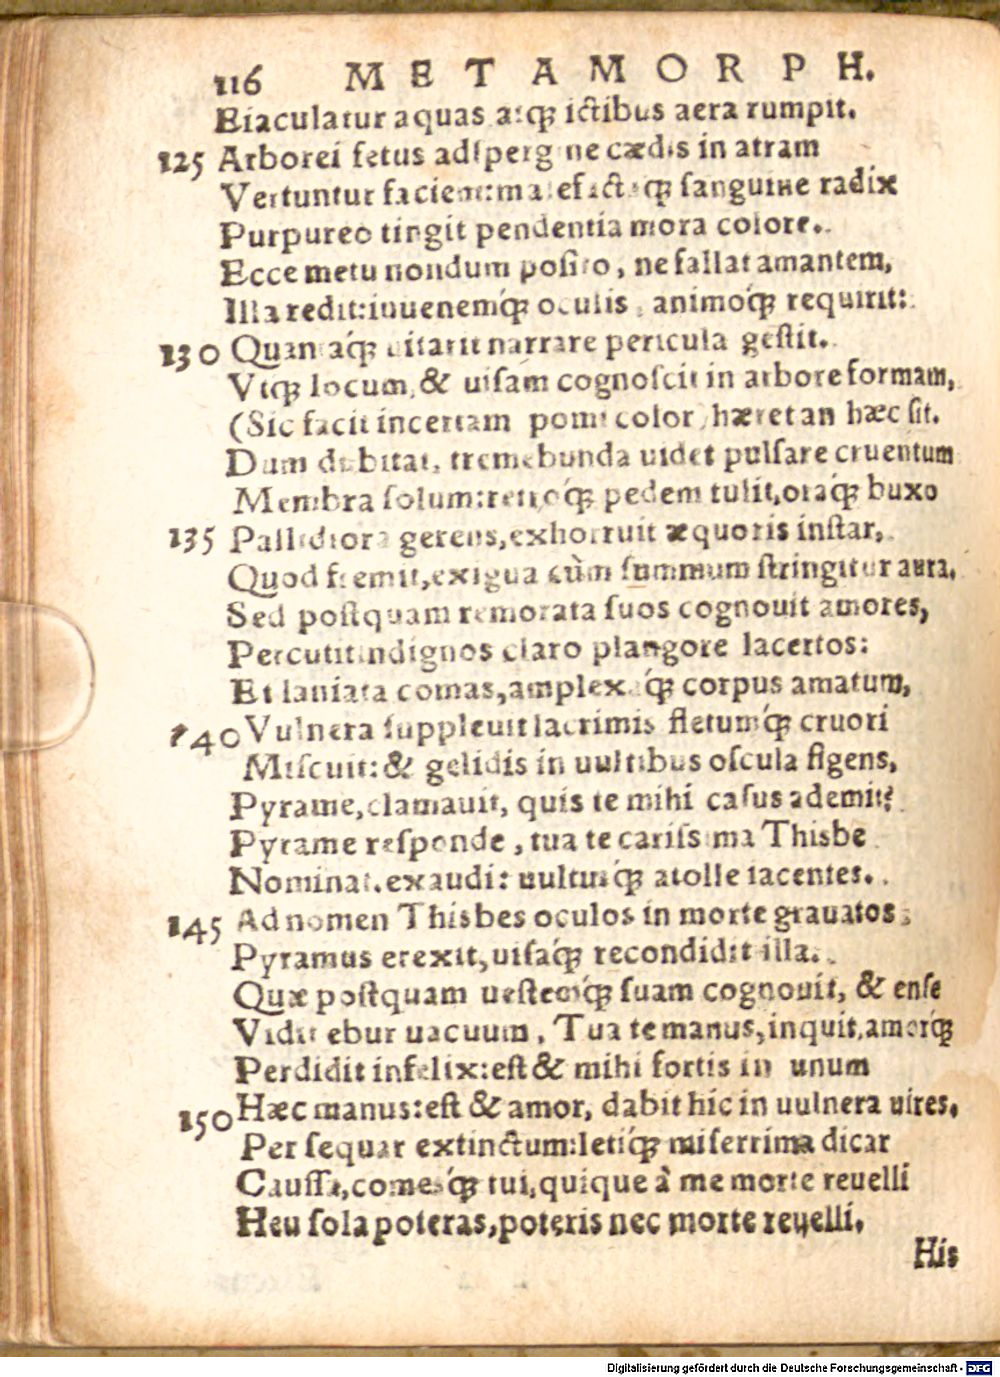 116 METAMORPH.
Eiaculatur aquas atq́; ictibus aera rumpit.
125 Arborei fetus adſpergine cædis in atram
Vertuntur faciem: madefactaq́; ſanguine radix
Purpureo tingit pendentia mora colore.
Ecce metu nondum poſito, ne fallat amantem,
Illa redit: iuuenemq́; oculis, animoq́; requirit:
130 Quantaq́; uitarit narrare pericula geſtit.
Vtq́; locum, & uiſam cognoſcit in arbore formam,
(Sic facit incertam pomi color) hæret an hæc ſit.
Dum dubitat, tremebunda uidet pulſare cruentum
Membra ſolum: retroq́; pedem tulit, oraq́; buxo
135 Pallidiora gerens, exhorruit æquoris inſtar,
Quod fremit, exigua cùm ſummum ſtringitur aura.
Sed poſtquam remorata ſuos cognouit amores,
Percutit indignos claro plangore lacertos:
Et laniata comas, amplexaq́; corpus amatum,
140 Vulnera ſuppleuit lacrimis fletumq́; cruori
Miſcuit: & gelidis in uultibus oſcula figens,
Pyrame, clamauit, quis te mihi caſus ademit?
Pyrame reſponde, tua te cariſsima Thisbe
Nominat. exaudi: uultusq́; atolle iacentes.
145 Ad nomen Thisbes oculos in morte grauatos
Pyramus erexit, uiſaq́; recondidit illa.
Quæ poſtquam ueſtemq́; ſuam cognouit, & enſe
Vidit ebur uacuum, Tua te manus, inquit, amorq́;
Perdidit infelix: eſt & mihi fortis in unum
150 Hæc manus: eſt & amor, dabit hic in uulnera uires.
Per ſequar extinctum: letiq́; miſerrima dicar
Cauſſa, comesq́; tui, quique à me morte reuelli
Heu ſola poteras, poteris nec morte reuelli.
His
Digitalisierung gefördert durch die Deutsche Forschungsgemeinschaft - DFG